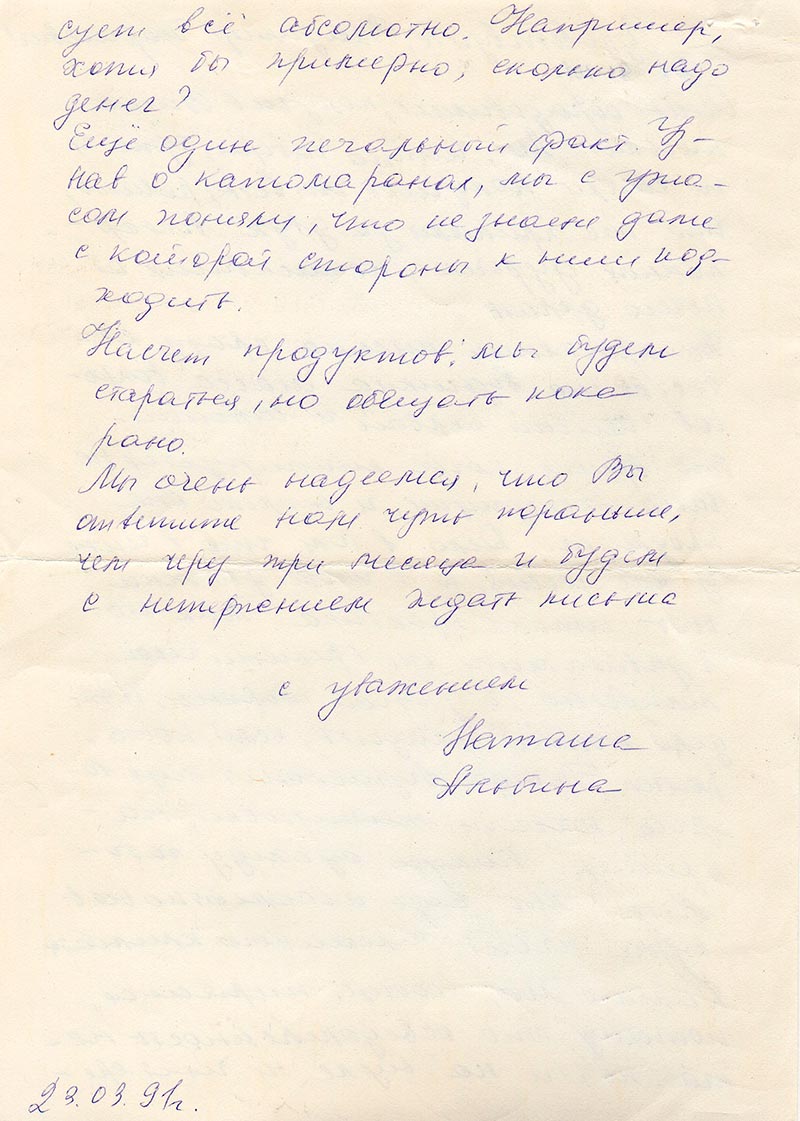 сует всё абсолютно. Например,
хотя бы примерно, сколько надо
денег?
Ещё один печальный факт. Уз-
нав о катамаранах, мы с ужа-
сом поняли, что не знаем даже
с которой стороны к ним под-
ходить.
Насчет продуктов: мы будем
стараться, но обещать пока
рано.
Мы очень надеемся, что Вы
ответите нам чуть пораньше,
чем через три месяца и будем
с нетерпением ждать письма
с уважением
Наташа
23.03.91г.